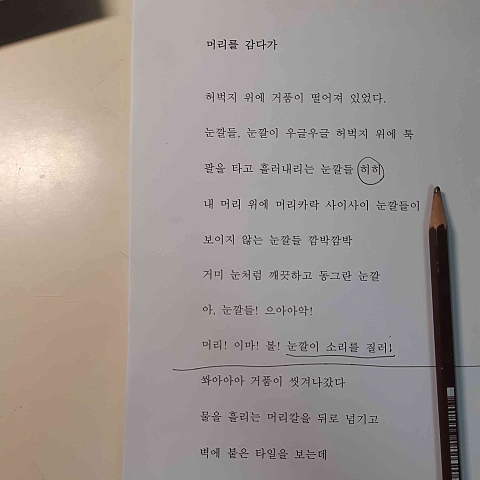 머리를 감다가
허벅지 위에 거품이 떨어져 있었다.
눈깔들, 눈깔이 우글우글 허벅지 위에 툭
팔을 타고 흘러내리는 눈깔들 히히
내 머리 위에 머리카락 사이사이 눈깔들이
보이지 않는 눈깔들 깜박깜박
거미 눈처럼 깨끗하고 동그란 눈깔
아, 눈깔들! 으아아악!
머리! 이마! 볼! 눈깔이 소리를 질러!
쏴아아아 거품이 씻겨나갔다
물을 흘리는 머리칼을 뒤로 넘기고
벽에 붙은 타일을 보는데